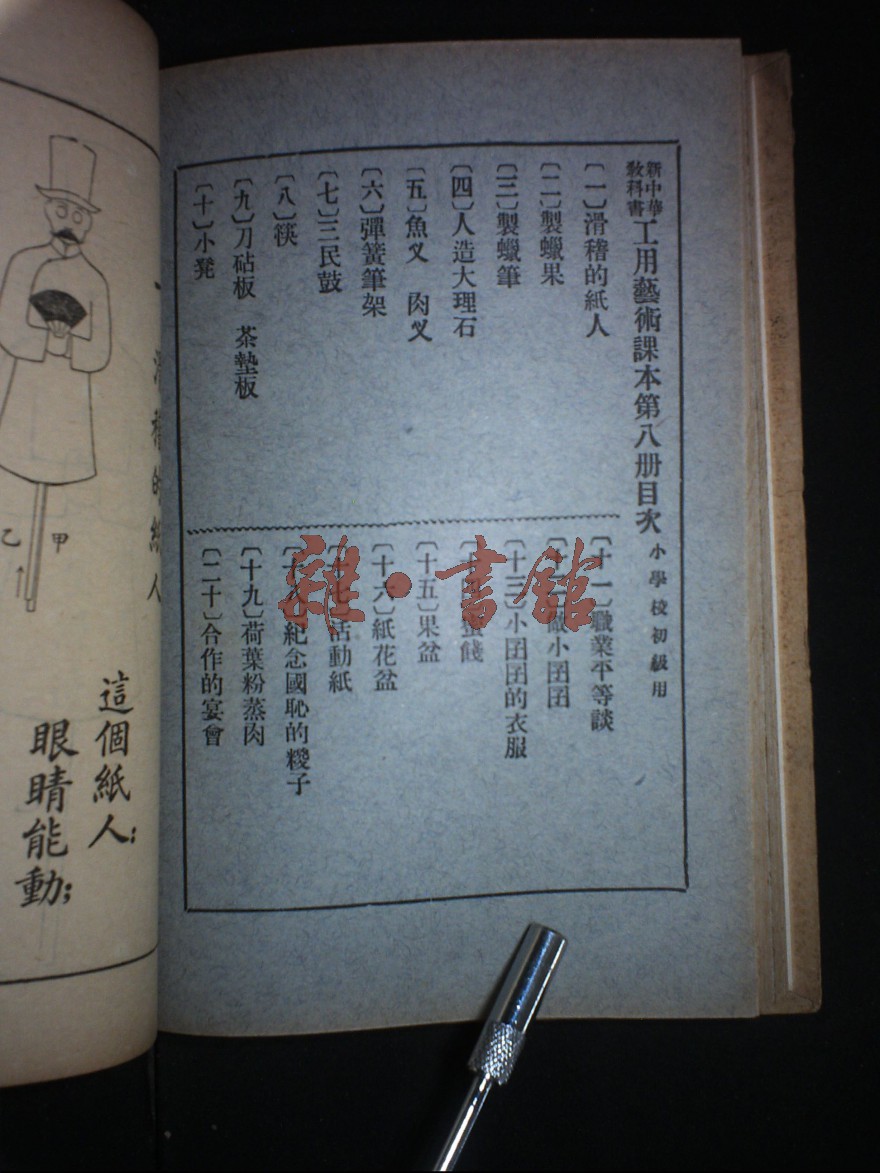 新中華教科書工用藝術課本第八册目次 小學校初級用
〔一〕滑稽的紙人
〔二〕製蠟果
〔三〕製蠟筆
〔四〕人造大理石
〔五〕魚叉 肉叉
〔六〕彈簧筆架
〔七〕三民鼓
〔八〕筷
〔九〕刀砧板 茶墊板
〔十〕小凳
〔十一〕職業平等談
〔十二〕做小囝囝
〔十三〕小囝囝的衣服
〔十四〕蜜餞
〔十五〕果盆
〔十六〕紙花盆
〔十七〕活動紙
〔十八〕紀念國恥的糉子
〔十九〕荷葉粉蒸肉
〔二十〕合作的宴會
雜·書館
一 滑稽的紙人
甲
乙
這個紙人；
眼睛能動；